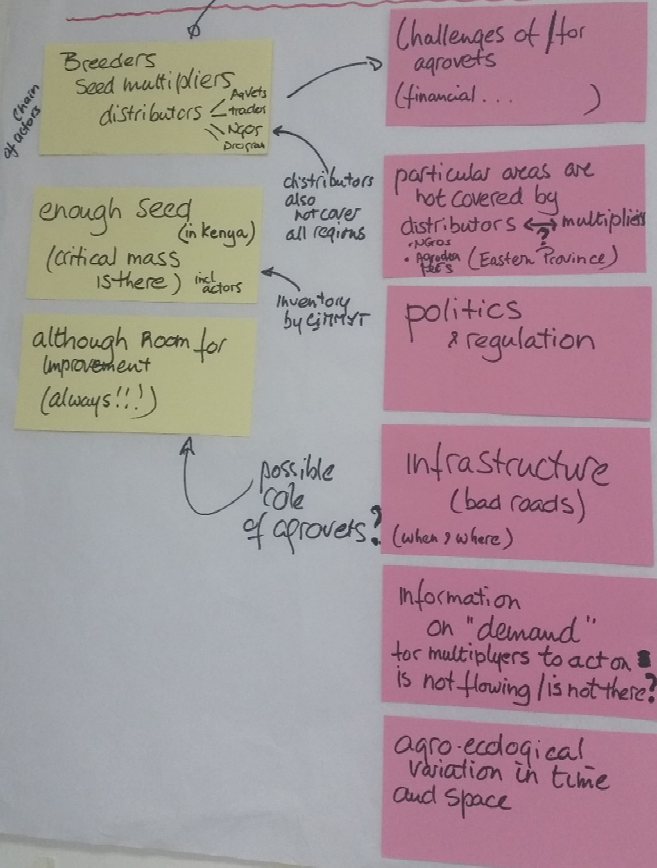 Chain
of actors
Breeders
Seed multipliers
distributors
Agvets
trados
NGOs
program
enough seed
(in Kenya)
(critical mass
is there)
incl
actors
although Room for
improvement
(always!!!)
distributors
also
not cover
all regions
inventory
by CIMMYT
possible
role
of agrovets?
Challenges of / for
agrovets
(financial... )
particular areas are
not covered by
distributors ↔ multipliers
?
• NGOs
• Agrodea
(Eastern Province)
politics
& regulation
infrastructure
(bad roads)
(when & where)
information
on "demand"
for multiplyers to act on
is not flowing / is not there?
agro-ecological
variation in time
and space